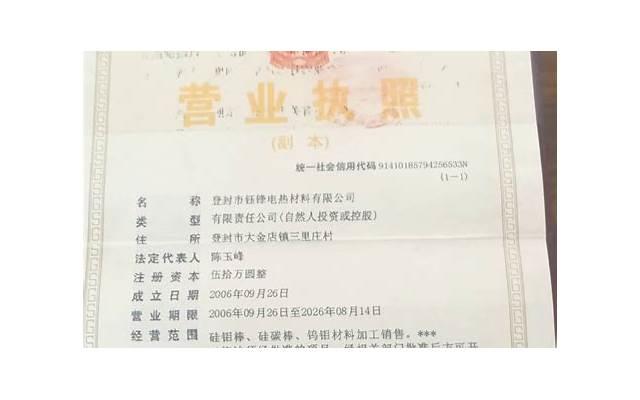 营业执照
(副 本)
统一社会信用代码 91410185794256533N
(1-1)
名 称 登封市钰锋电热材料有限公司
类 型 有限责任公司(自然人投资或控股)
住 所 登封市大金店镇三里庄村
法定代表人 陈玉峰
注册资本 伍拾万圆整
成立日期 2006年09月26日
营业期限 2006年09月26日至2026年08月14日
经营范围 硅钼棒、硅碳棒、钨钼材料加工销售。***
经批准的项目，经相关部门批准后方可开